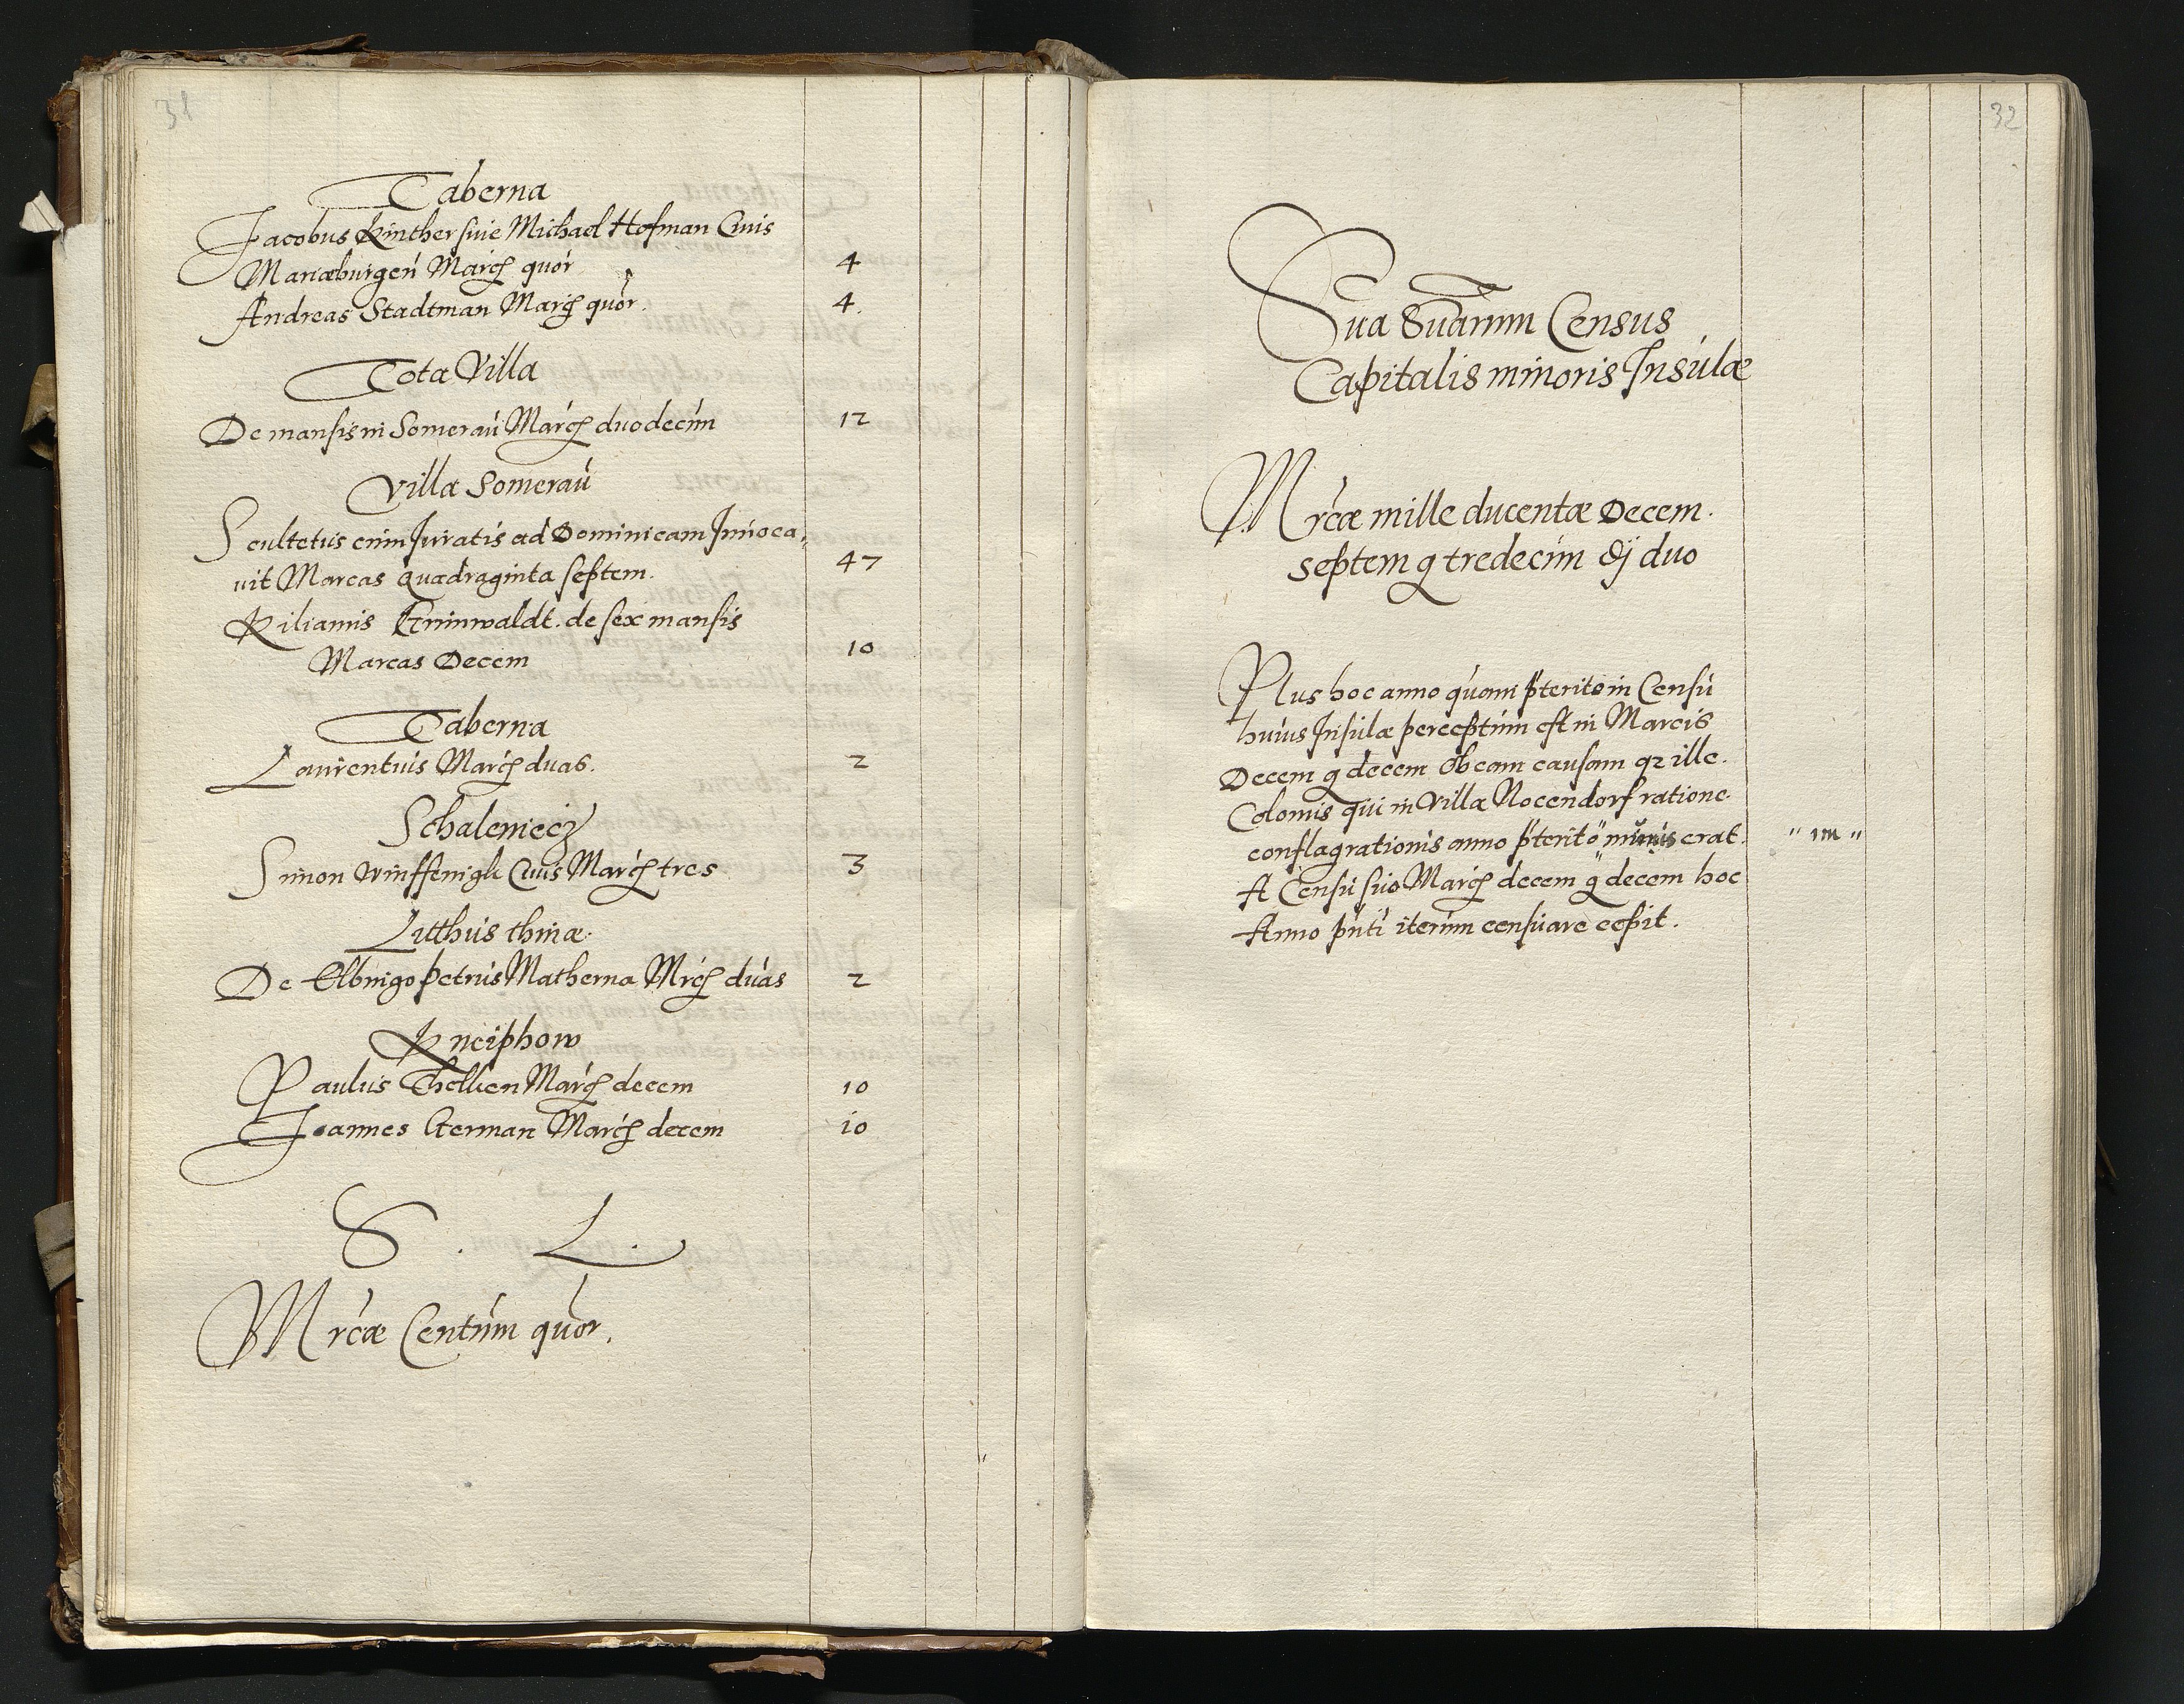 31
Taberna
Jacobus Kinther siue Michael Hofman Ciuis
Mariæburgen̄ Marcꝭ quor
4
Andreas Stadtman Marcꝭ quor.
4.
Tota Villa
De mansis in Someraú Marcꝭ duodecim
12
Villa Someraú
Scultetus cum Iuratis ad Dominicam Inuoca,
uit Marcas quadraginta septem.
47
Kilianus Grunwaldt. de sex mansis
Marcas Decem
10
Taberna
Laurentius Marcꝭ duas.
2
Schaleniecz
Simon Winffenigk Ciuis Marcꝭ tres
3
Litthus thinæ.
De Elbingo Petrus Matherna Mrcꝭ duas
2
Kneiphow
Paulus Thollien Marcꝭ decem
10
Joannes German Marcꝭ decem
10
S. L.
Mrcæ Centum quor.
32
Sua Suarum Census
Capitalis minoris Insulæ
Mrcæ mille ducentæ Decem.
septem g tredecim ẟ duo
Plus hoc anno quam pterito in Censu
huius Insulæ perceptum est in Marcis
Decem g decem Ob eam causam qz ille.
Colonus qui in Villa Nocendorf ratione.
conflagrationis anno pterito munis erat.
" im "
A Censu suo Marcꝭ decem g decem hoc
Anno pn̄ti iterum censuare cepit.